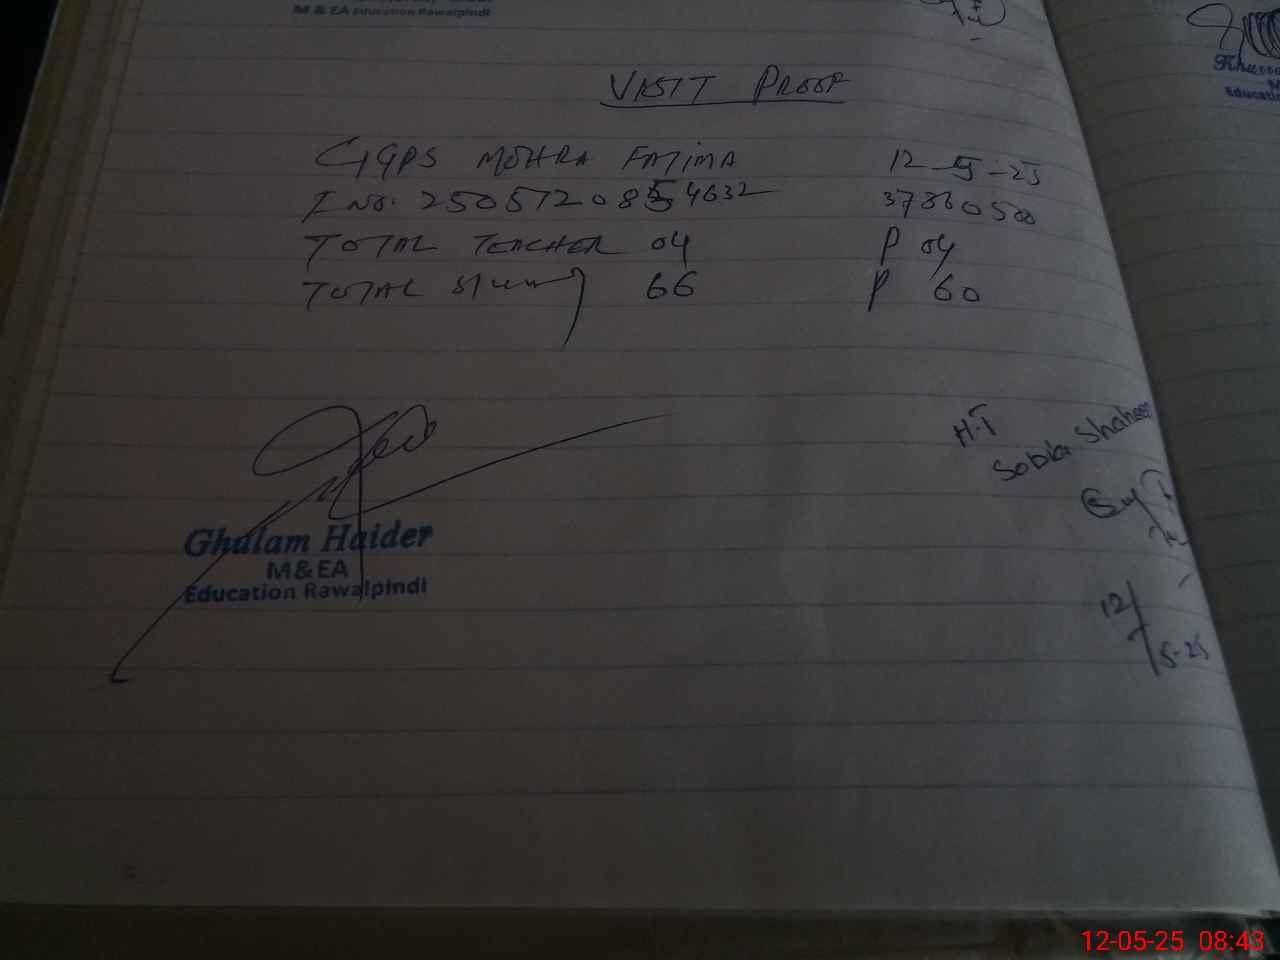 M & EA Education Rawalpindi
VISIT PROOF
GGPS MOHRA FATIMA 12-5-25
I No. 2505120854632 37360500
TOTAL TEACHER 04 P 04
TOTAL 66 P 60
H.T
Sobia Shaheen
12/5-25
Ghulam Haider
M&EA
Education Rawalpindi
12-05-25 08:43